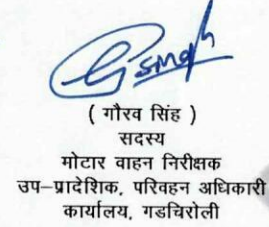 ( गौरव सिंह )
सदस्य
मोटार वाहन निरीक्षक
उप-प्रादेशिक, परिवहन अधिकारी
कार्यालय, गडचिरोली